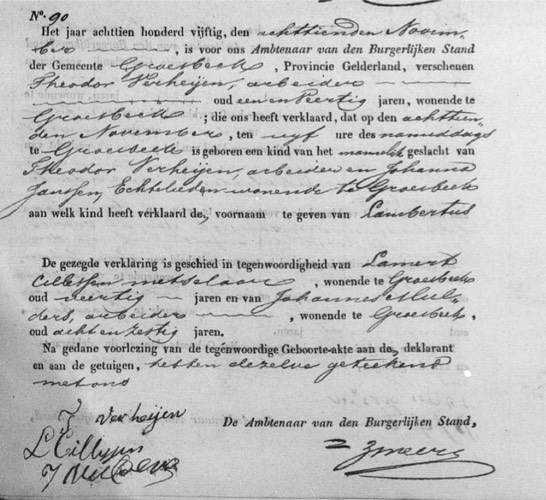 No. 90
Het jaar achttien honderd vijftig, den achttienden Novem-
ber, is voor ons Ambtenaar van den Burgerlijken Stand
der Gemeente Groesbeek, Provincie Gelderland, verschenen
Theodor Verheijen, arbeider
oud een en veertig jaren, wonende te
Groesbeek; die ons heeft verklaard, dat op den achttien-
den November, ten vijf ure des namiddags
te Groesbeek is geboren een kind van het mannelijk geslacht van
Theodor Verheijen, arbeider en Johanna
Janssen, Echtelieden wonende te Groesbeek
aan welk kind heeft verklaard de, voornaam te geven van Lambertus
De gezegde verklaring is geschied in tegenwoordigheid van Lamert
Cillessen metselaar, wonende te Groesbeek
oud veertig jaren en van Johannes Mul-
ders, arbeider, wonende te Groesbeek,
oud acht en zestig jaren.
Na gedane voorlezing van de tegenwoordige Geboorte-akte aan de, deklarant
en aan de getuigen, hebben dezelve geteekend
met ons
T Verheijen
De Ambtenaar van den Burgerlijken Stand,
L Cillessen